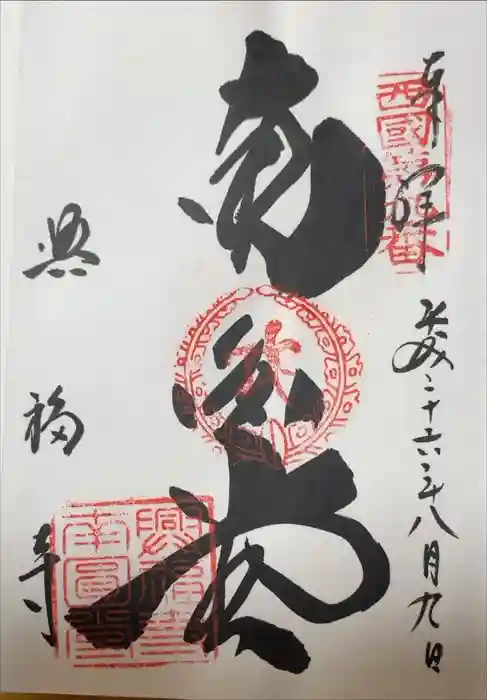 奉拝
西國第九番
平成二十六年八月九日
南円堂
興福寺
興福寺
南圓堂